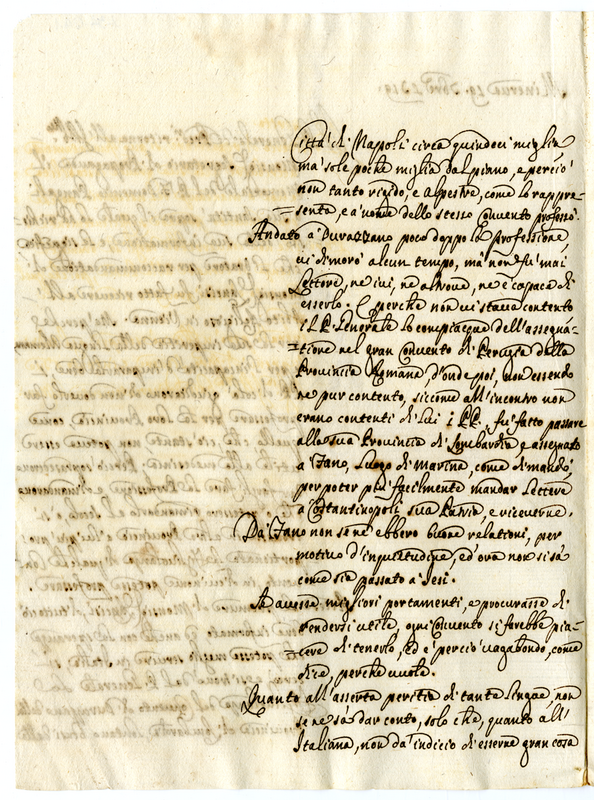 Città di Napoli circa quindeci miglia,
mà sole poche miglia dal piano, e perciò
non tanto rigido, e alpestre, come lo rappre=
=senta, e à nome dello stesso Convento professò.
Andato à Durazzano poco doppo la professione,
vi dimorò alcun tempo, mà non fù mai
Lettore, ne ivi, ne altrove, ne è capace di
esserlo. E perche non vi stava contento
il P. Generale lo compiacque dell'assegna=
=tione nel gran Convento di Perugia della
Provincia Romana, d'onde poi, non essendo
ne pur contento, siccome all'incontro non
erano contenti di lui i PP., fù fatto passare
alla sua Provincia di Lombardia, e assegnato
à Fano, Luogo di Marina, come dimandò,
per poter più facilmente mandar Lettere
à Costantinopoli sua Patria, e riceverne.
Da Fano non se n'ebbero buone relationi, per
motivo d'inquietudine, ed ora non si sà
come sia passato à Jesi.
Se avesse migliori portamenti, e procurasse di
rendersi utile, ogni Convento si farebbe pia=
=cere di tenerlo, ed è perciò vagabondo, come
dice, perche vuole.
Quanto all'asserta peritia di tante lingue non
se ne sà dar conto, solo che, quanto all'
Italiana, non dà indicio di esserne gran cosa